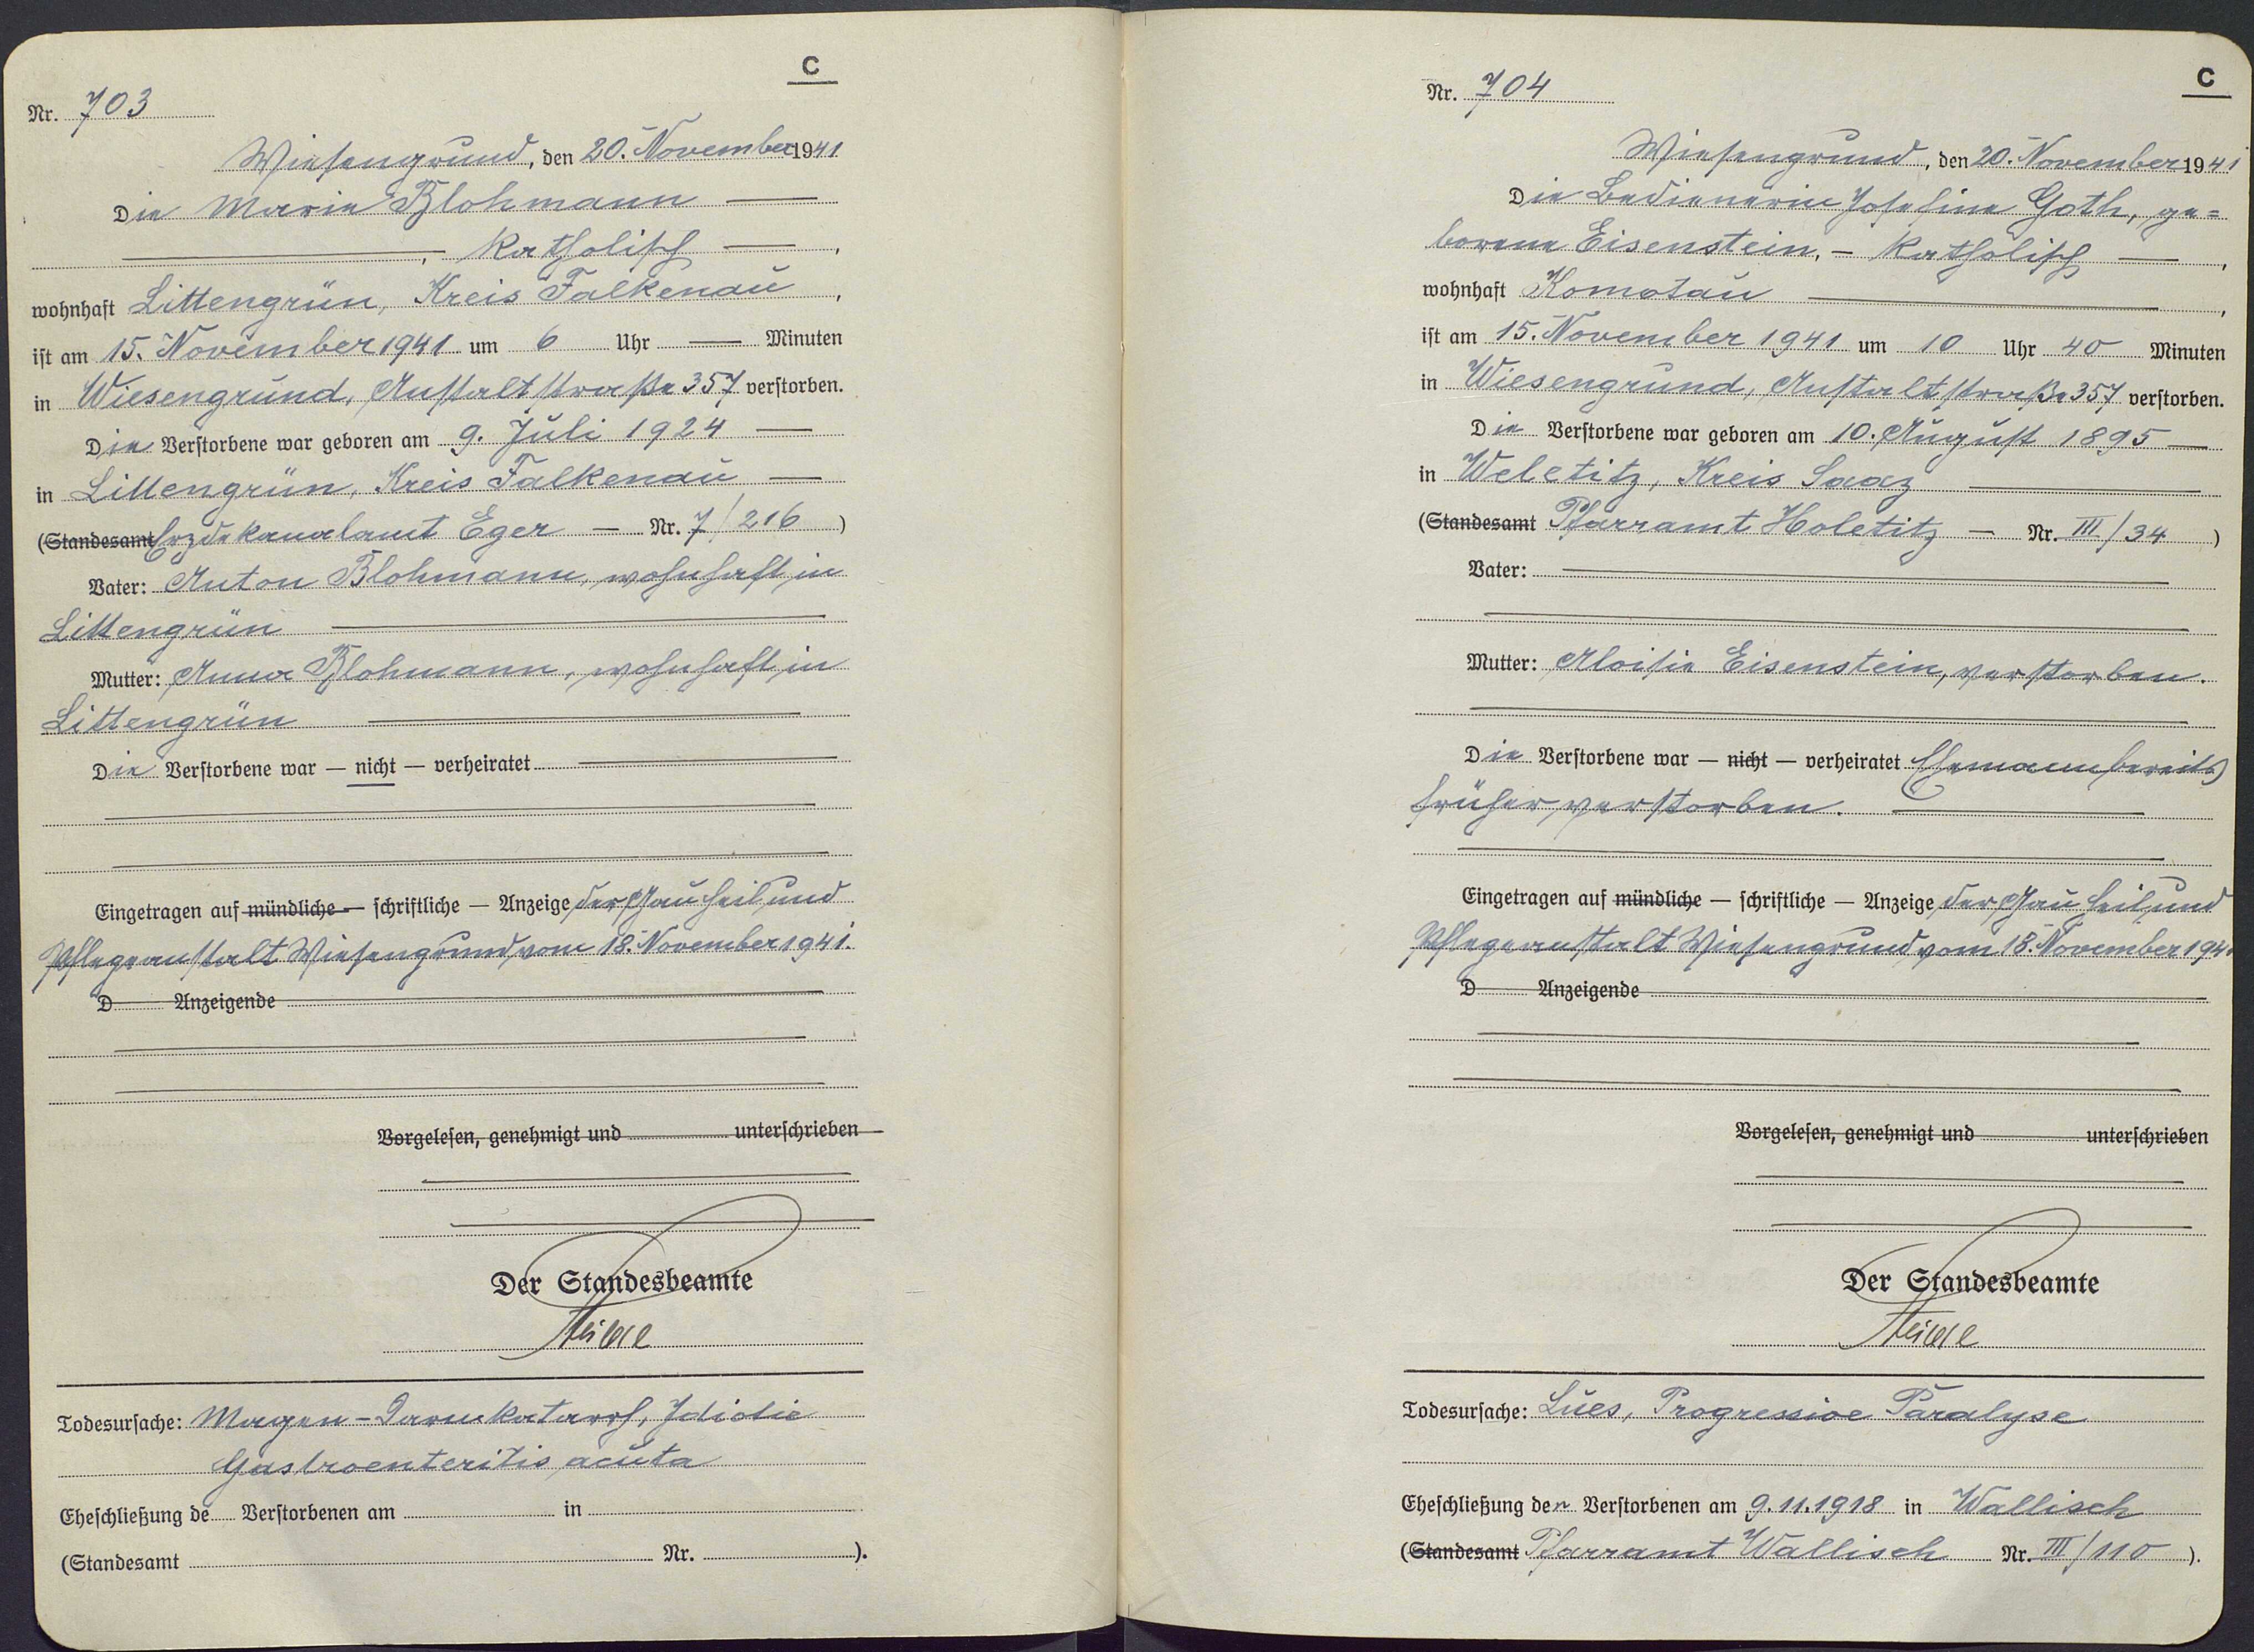 C
Nr. 703
Wiesengrund, den 20. November 1941
Die Marie Blohmann —
—, katholisch —,
wohnhaft Littengrün, Kreis Falkenau,
ist am 15. November 1941 um 6 Uhr — Minuten
in Wiesengrund, Anstaltstraße 357 verstorben.
Die Verstorbene war geboren am 9. Juli 1924 —
in Littengrün, Kreis Falkenau —
(Standesamt Erzdekanalamt Eger — Nr. 7/216)
Vater: Anton Blohmann, wohnhaft in
Littengrün —
Mutter: Anna Blohmann, wohnhaft in
Littengrün —
Die Verstorbene war — nicht — verheiratet —
Eingetragen auf mündliche — schriftliche — Anzeige der Gau Heil und
Pflegeanstalt Wiesengrund vom 18. November 1941.
D Anzeigende
Vorgelesen, genehmigt und unterschrieben
Der Standesbeamte
Todesursache: Magen-Darmkatarrh, Idiotie
Gastroenteritis acuta
Eheschließung de Verstorbenen am in
(Standesamt Nr. ).
C
Nr. 704
Wiesengrund, den 20. November 1941
Die Bedienerin Josefine Goth, ge=
borene Eisenstein, — katholisch —,
wohnhaft Komotau —,
ist am 15. November 1941 um 10 Uhr 40 Minuten
in Wiesengrund, Anstaltstraße 357 verstorben.
Die Verstorbene war geboren am 10. August 1895 —
in Weletitz, Kreis Saaz —
(Standesamt Pfarramt Holetitz — Nr. III/34)
Vater: —
Mutter: Aloisia Eisenstein, verstorben.
Die Verstorbene war — nicht — verheiratet (Ehemann bereits)
früher verstorben. —
Eingetragen auf mündliche — schriftliche — Anzeige der Gau Heil und
Pflegeanstalt Wiesengrund vom 18. November 1941
D Anzeigende
Vorgelesen, genehmigt und unterschrieben
Der Standesbeamte
Todesursache: Lues, Progressive Paralyse
Eheschließung der Verstorbenen am 9.11.1918 in Wallisch
(Standesamt Pfarramt Wallisch Nr. III/110).